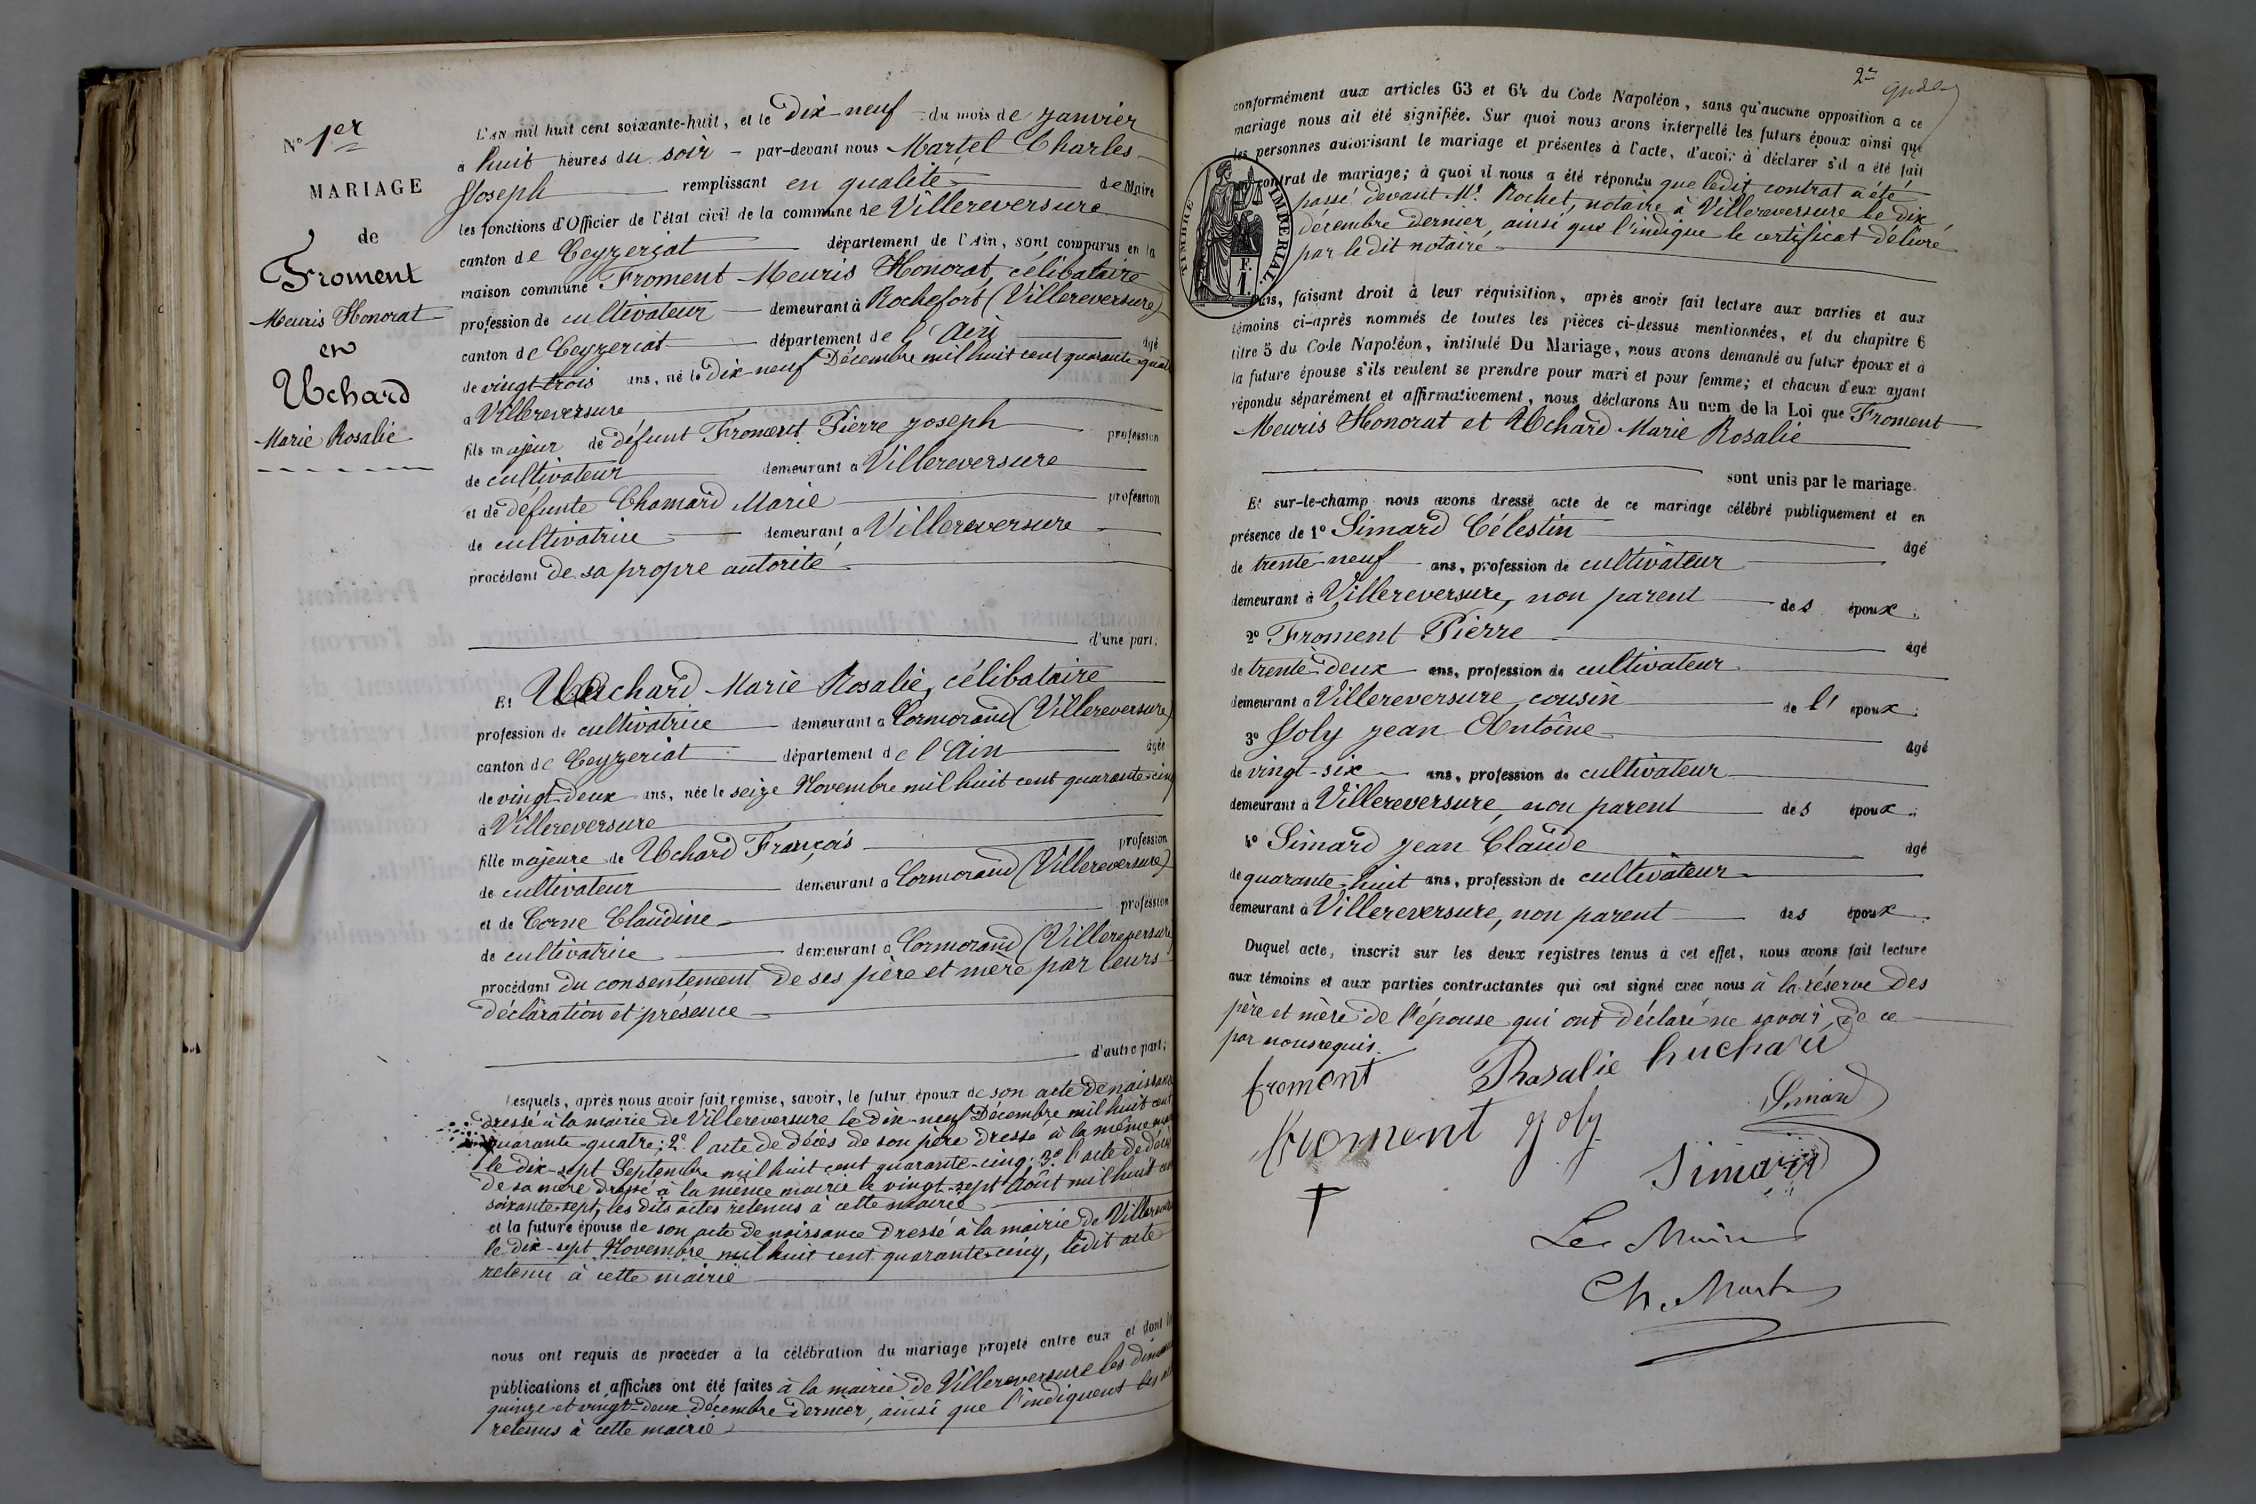 N° 1er
MARIAGE
de
Froment
Meuris Honorat
et
Uchard
Marie Rosalie
L'AN mil huit cent soixante-huit, et le dix-neuf du mois de Janvier
à huit heures du soir par-devant nous Martel Charles
Joseph remplissant en qualité de Maire
les fonctions d'Officier de l'état civil de la commune de Villereversure
canton de Ceyzeriat département de l'Ain, sont comparus en la
maison commune Froment Meuris Honorat, célibataire
profession de cultivateur demeurant à Rochefort (Villereversure)
canton de Ceyzeriat département de l'Ain âgé
de vingt-trois ans, né le dix-neuf Décembre mil huit cent quarante-quat
à Villereversure
fils majeur de défunt Froment Pierre Joseph profession
de cultivateur demeurant à Villereversure
et de défunte Chamard Marie profession
de cultivatrice demeurant à Villereversure
procédant de sa propre autorité
d'une part;
Et Uchard Marie Rosalie, célibataire
profession de cultivatrice demeurant à Cormorand (Villereversure)
canton de Ceyzeriat département de l'Ain âgée
de vingt-deux ans, née le seize Novembre mil huit cent quarante-cinq
à Villereversure
fille majeure de Uchard François profession
de cultivateur demeurant à Cormorand (Villereversure)
et de Corne Claudine profession
de cultivatrice demeurant à Cormorand (Villereversure
procédant du consentement de ses père et mère par leurs
déclaration et présence
d'autre part;
Lesquels, après nous avoir fait remise, savoir, le futur époux de son acte de naissance
dressé à la mairie de Villereversure le dix-neuf Décembre mil huit cent
quarante-quatre; 2° l'acte de décès de son père dressé à la même
le dix-sept Septembre mil huit cent quarante-cinq; 3° l'acte de décès
de sa mère dressé à la même mairie le vingt-sept Août mil huit cent
soixante-sept, les dits actes retenus à cette mairie
et la future épouse de son acte de naissance dressé à la mairie de
le dix-sept Novembre mil huit cent quarante-cinq, ledit acte
retenu à cette mairie
nous ont requis de procéder à la célébration du mariage projeté entre eux et dont les
publications et affiches ont été faites à la mairie de Villereversure les
quinze et vingt-deux décembre dernier, ainsi que l'indiquent les
retenus à cette mairie
conformément aux articles 63 et 64 du Code Napoléon, sans qu'aucune opposition a ce
mariage nous ait été signifiée. Sur quoi nous avons interpellé les futurs époux ainsi que
les personnes autorisant le mariage et présentes à l'acte, d'avoir à déclarer s'il a été fait
contrat de mariage; à quoi il nous a été répondu que ledit contrat a été
passé devant Me Rochet, notaire à Villereversure le dix
décembre dernier, ainsi que l'indique le certificat délivré
par ledit notaire
TIMBRE IMPERIAL
F.
1.
faisant droit à leur réquisition, après avoir fait lecture aux parties et aux
témoins ci-après nommés de toutes les pièces ci-dessus mentionnées, et du chapitre 6
titre 5 du Code Napoléon, intitulé Du Mariage, nous avons demandé au futur époux et à
la future épouse s'ils veulent se prendre pour mari et pour femme; et chacun d'eux ayant
répondu séparément et affirmativement, nous déclarons Au nom de la Loi que Froment
Meuris Honorat et Uchard Marie Rosalie
sont unis par le mariage.
Et sur-le-champ nous avons dressé acte de ce mariage célébré publiquement et en
présence de 1° Simard Célestin âgé
de trente-neuf ans, profession de cultivateur
demeurant à Villereversure, non parent des époux.
2° Froment Pierre âgé
de trente-deux ans, profession de cultivateur
demeurant à Villereversure, cousin de l' époux;
3° Joly Jean Antoine âgé
de vingt-six ans, profession de cultivateur
demeurant à Villereversure, non parent des époux;
4° Simard Jean Claude âgé
de quarante-huit ans, profession de cultivateur
demeurant à Villereversure, non parent des époux.
Duquel acte, inscrit sur les deux registres tenus à cet effet, nous avons fait lecture
aux témoins et aux parties contractantes qui ont signé avec nous à la réserve des
père et mère de l'épouse qui ont déclaré ne savoir, de ce
par nous requis.
froment Rosalie huchard
froment Joly Simard
Simard
Le Maire
Ch. Martel